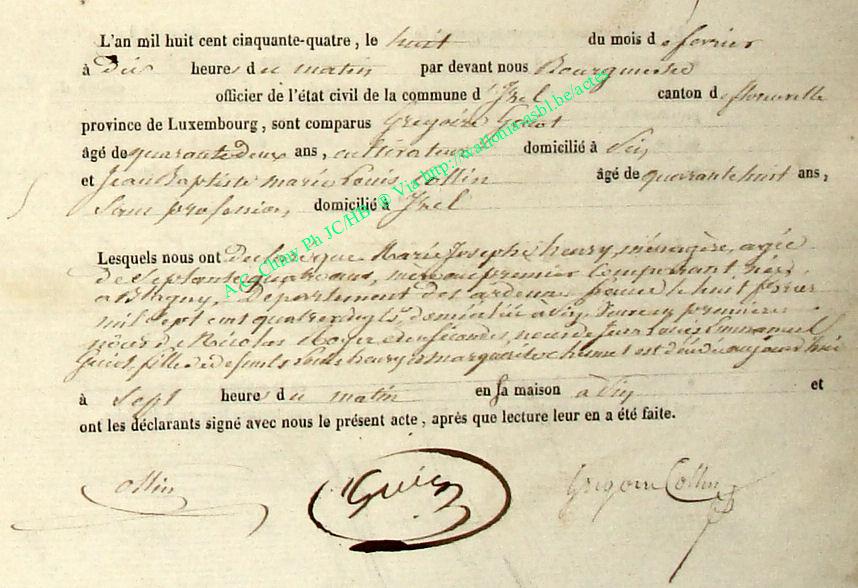 L'an mil huit cent cinquante-quatre, le huit du mois de fevrier
à dix heures du matin par devant nous
officier de l'état civil de la commune d'Izel canton de florenville
province de Luxembourg, sont comparus Grégoire
âgé de quarante deux ans, cultivateur domicilié à
et Jean Baptiste marie Louis Collin âgé de quarante huit ans,
Sans profession, domicilié à Izel
Lesquels nous ont declare que Marie Josephe henry, ménagère, agée
de Septante quatre ans, mere au premier comparant, née
a Blagny, Departement des ardennes france le huit fevrier
mil sept cent quatre vingts, domiciliée a veuve en premières
noces de Nicolas et en secondes noces de Jean Louis Emmanuel
fille de defunts Louis henry et marguerite est décédée aujourd'hui
à Sept heures du matin en sa maison a et
ont les déclarants signé avec nous le présent acte, après que lecture leur en a été faite.
Collin Grégoire Collin
A.G. Chiny Ph JC/HB ® Via http://wallonia-asbl.be/actes